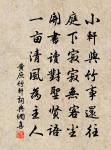 小軒與竹事遂往
庭下寂寂無客塵
剛書讀對聖賢語
一亩清風為主人
黄庶竹軒詞典網書